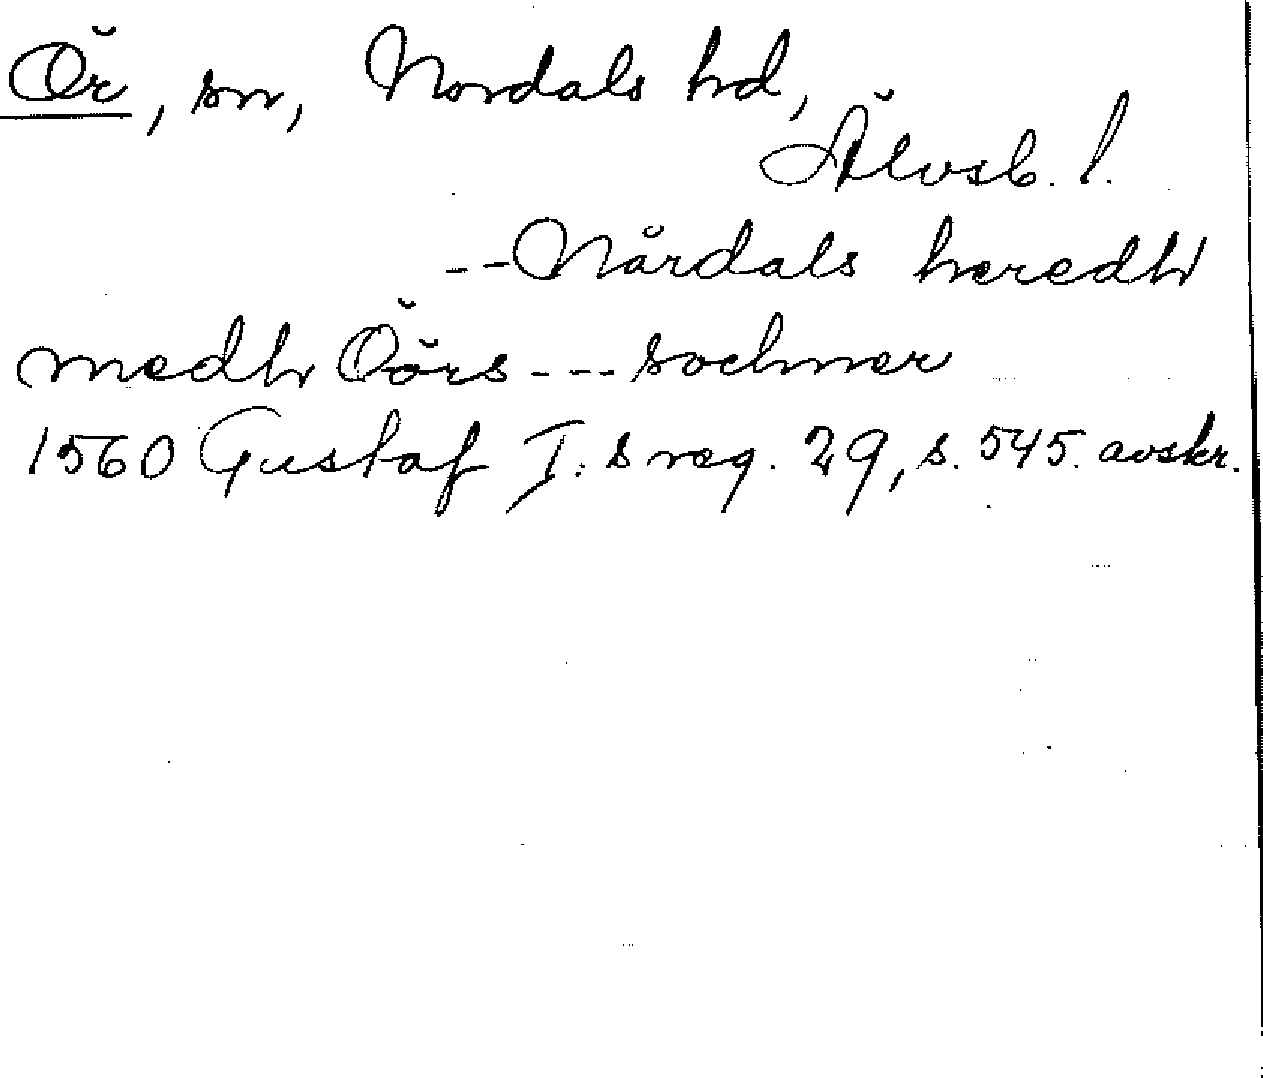 Ör, sn, Nordals hd,
Älvsb. l.
-- Nårdals heredh
medh Öörs --- sochner
1560 Gustaf I:s reg. 29, s. 545. avskr.